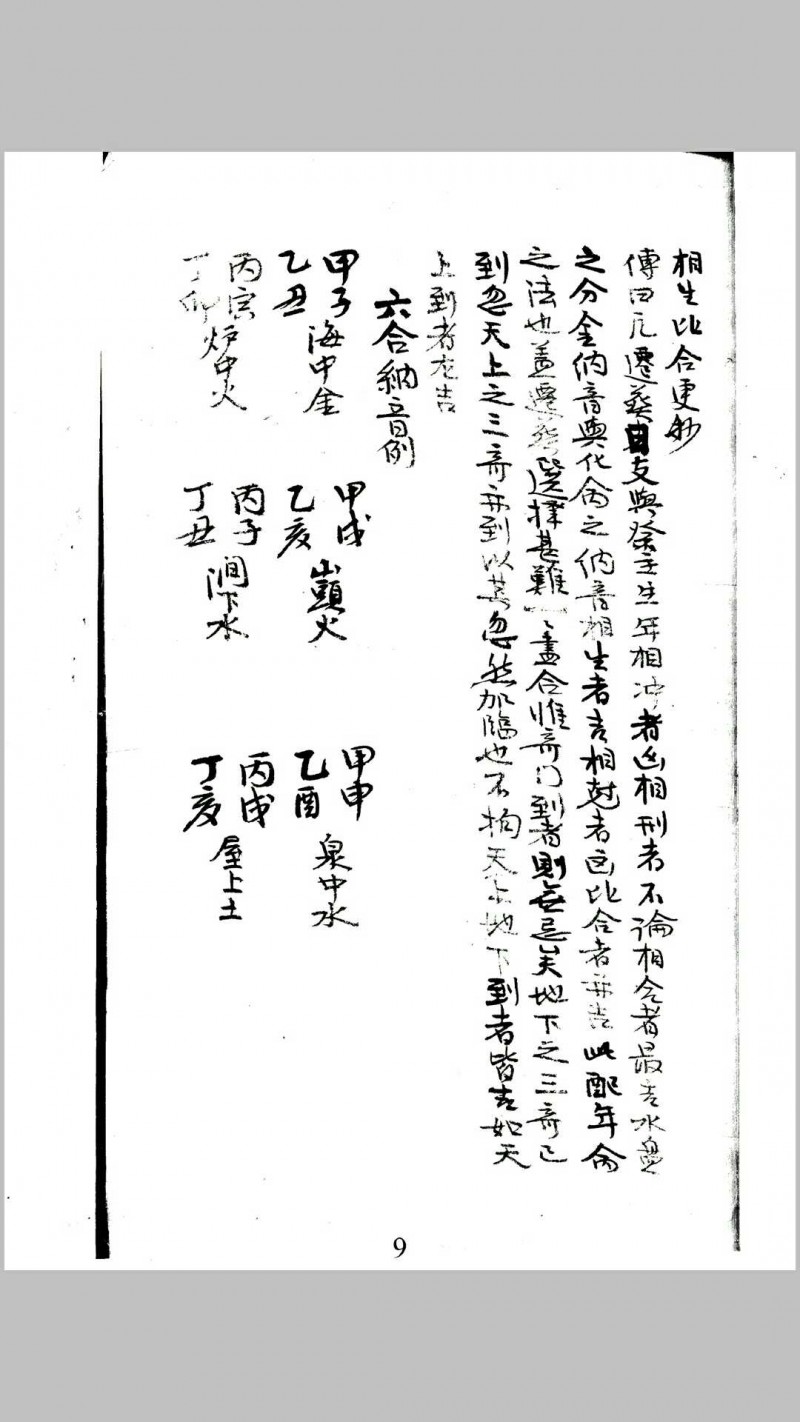 相生比合更妙
傳曰凡遷葬日支與祭主生年相冲者凶相刑者不論相合者最吉水盘
之分金纳音與化命之纳音相生者吉相尅者凶比合者亦吉此配年命
之法也盖遷葬選擇甚難一一盡合惟奇门到者則無忌矣地下之三奇已
到忽天上之三奇亦到以其忽然加臨也不拘天上地下到者皆吉如天
上到者尤吉
六合納音例
甲子 乙丑 海中金
甲戌 乙亥 山頭火
甲申 乙酉 泉中水
丙寅 丁卯 炉中火
丙子 丁丑 澗下水
丙戌 丁亥 屋上土
9